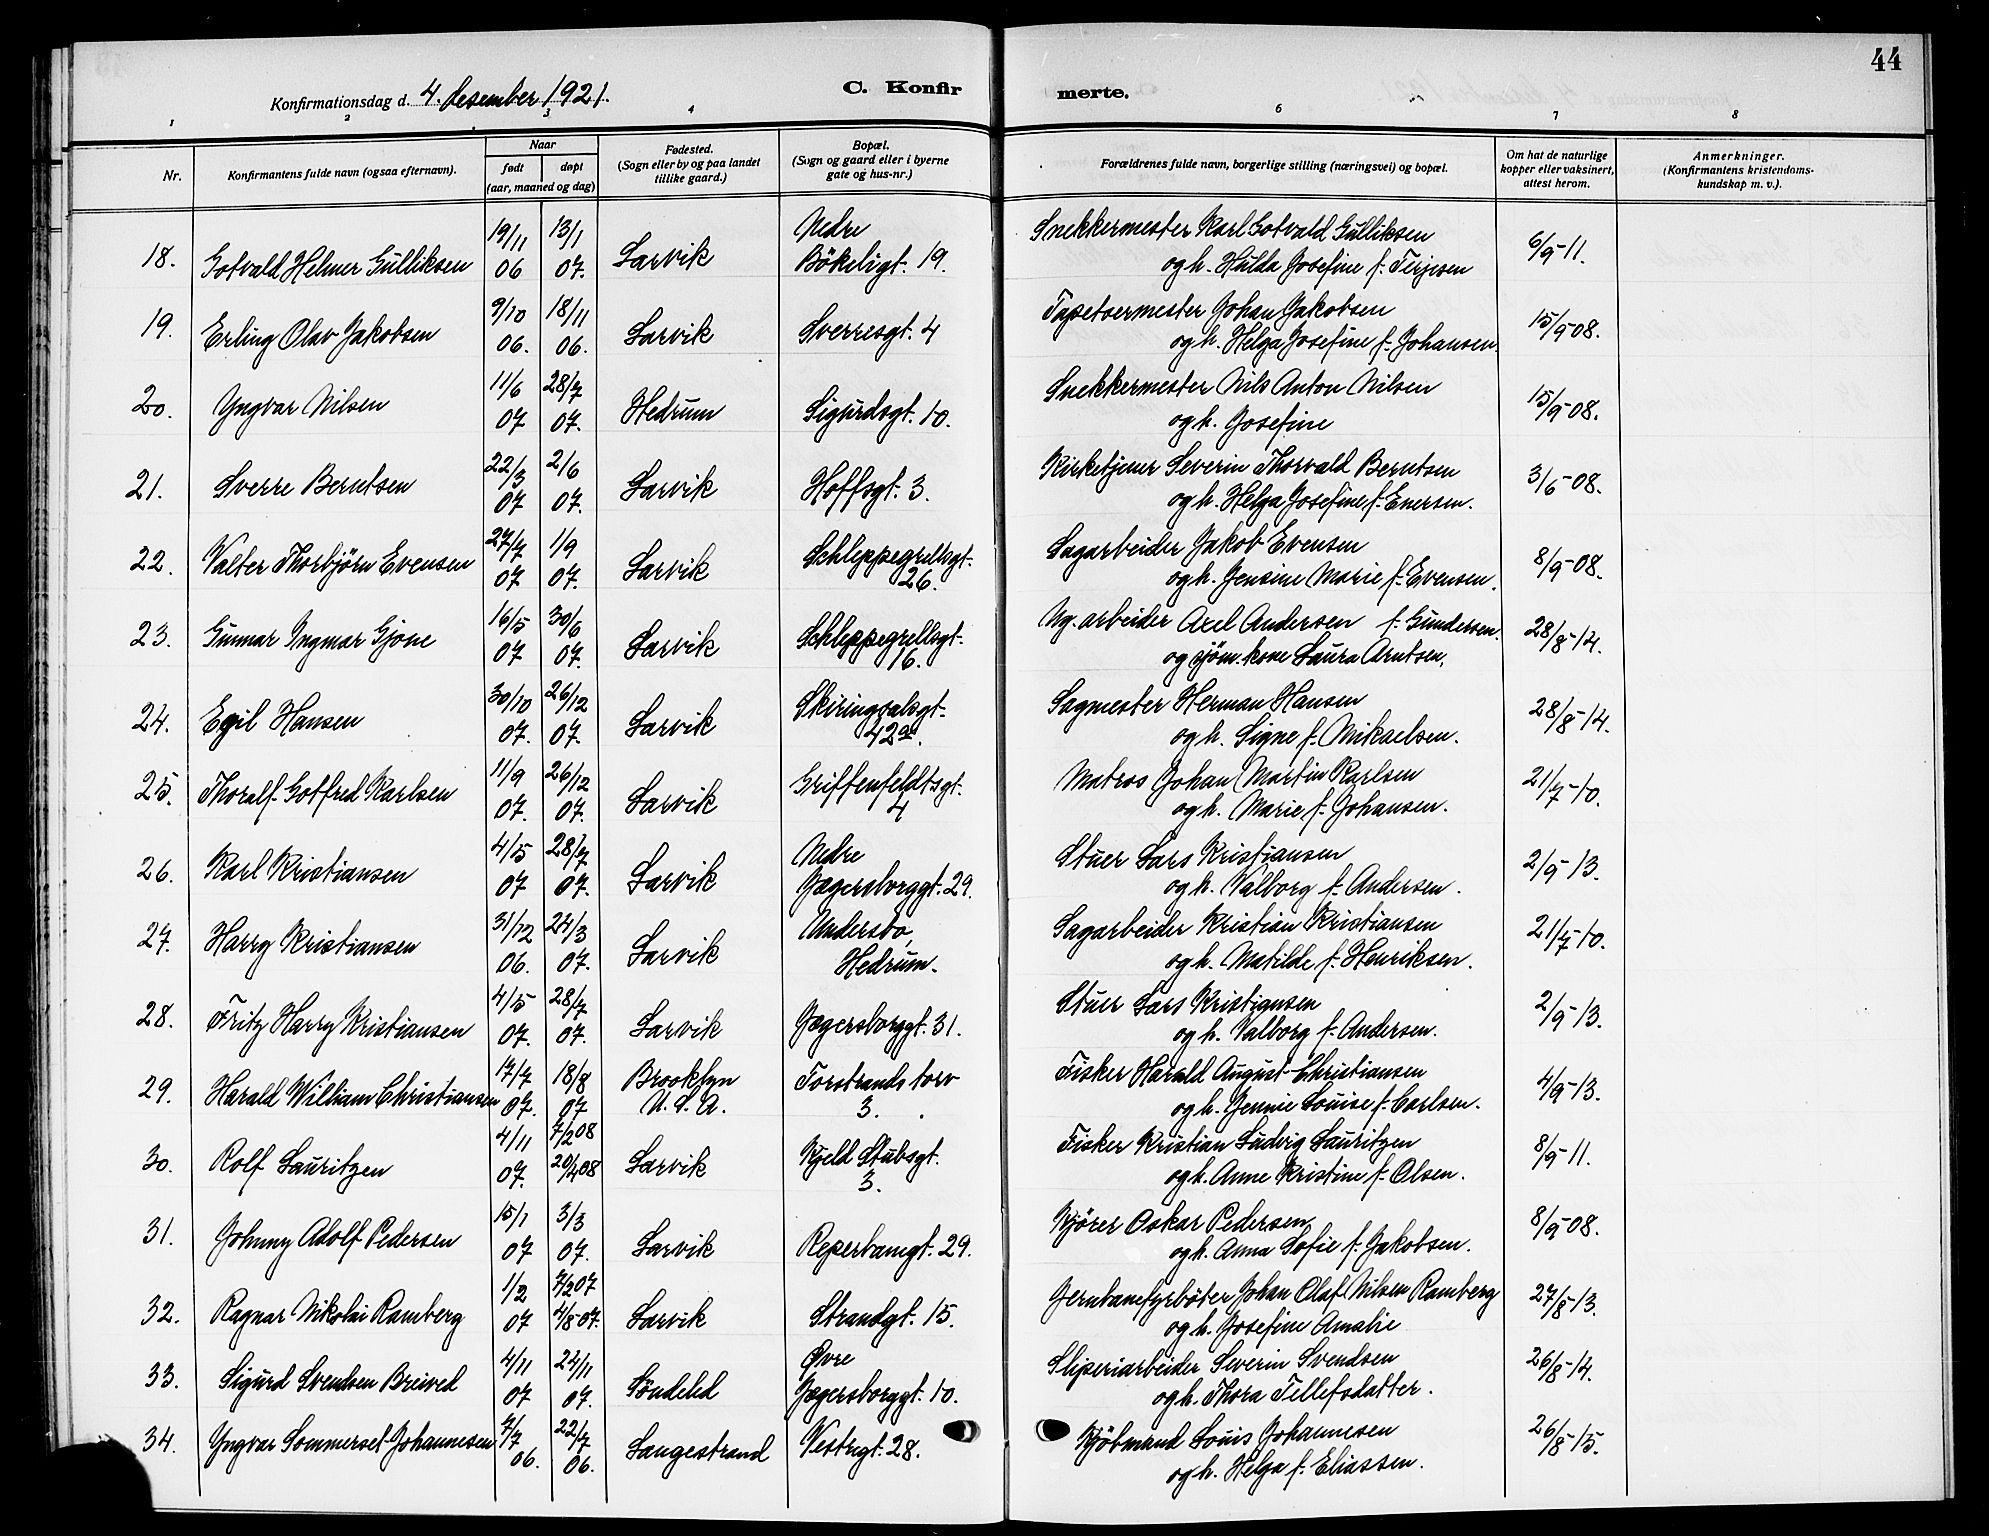 44
Konfirmationsdag d. 4. desember 1921.
C. Konfirmerte.
1 2 3 4 6 7 8
Nr.
Konfirmantens fulde navn (ogsaa efternavn).
Naar
født
døpt
(aar, maaned og dag)
Fødested.
(Sogn eller by og paa landet
tillike gaard.)
Bopæl.
(Sogn og gaard eller i byerne
gate og hus-nr.)
Forældrenes fulde navn, borgerlige stilling (næringsvei) og bopæl.
Om hat de naturlige
kopper eller vaksinert,
attest herom.
Anmerkninger.
(Konfirmantens kristendoms-
kundskap m. v.).
18. Gotvald Helmer Gulliksen 19/11 06 13/1 07. Larvik Nedre Bökeligt. 19. Snekkermester Karl Gotvald Gulliksen 6/9-11.
og h. Hulda Josefine f. Terjesen
19. Erling Olav Jakobsen 9/10 06. 18/11 06. Larvik Sverresgt. 4 Tapetsermester Johan Jakobsen 15/9-08.
og h. Helga Josefine f. Johansen.
20. Yngvar Nilsen 11/6 07 28/7 07. Hedrum Sigurdsgt. 10. Snekkermester Nils Anton Nilsen 15/9-08.
og h. Josefine
21. Sverre Berntsen 22/3 07 2/6 07. Larvik Hoffsgt. 3. Kirketjener Severin Thorvald Berntsen 3/6-08.
og h. Helga Josefine f. Enersen.
22. Valter Thorbjørn Evensen 27/7 07 1/9 07. Larvik Schleppegrellsgt. 26. Sagarbeider Jakob Evensen 8/9-08.
og h. Jensine Marie f. Evensen.
23. Gunnar Ingmar Gjone 16/5 07 30/6 07. Larvik Schleppegrellsgt. 16. Ug. arbeider Axel Andersen f. Gundersen. 28/8-14.
og sjøm. kone Laura Arntsen.
24. Egil Hansen 30/10 07. 26/12 07. Larvik Skiringsalsgt. 42a. Sagmester Herman Hansen 28/8-14.
og h. Signe f. Mikaelsen.
25. Thoralf Gotfred Karlsen 11/9 07. 26/12 07. Larvik Griffenfeldtsgt. 4 Matros Johan Martin Karlsen 21/7-10.
og h. Marie f. Johansen.
26. Karl Kristiansen 4/5 07 28/7 07. Larvik Nedre Jægersborggt. 29. Stuer Lars Kristiansen 2/9-13.
og h. Valborg f. Andersen.
27. Harry Kristiansen 31/12 06. 24/3 07. Larvik Undersbo, Hedrum. Sagarbeider Kristian Kristiansen 21/7-10.
og h. Matilde f. Henriksen.
28. Fritz Harry Kristiansen 4/5 07. 28/7 07. Larvik Jægersborggt. 31. Stuer Lars Kristiansen 2/9-13.
og h. Valborg f. Andersen.
29. Harald William Christiansen 17/7 07. 18/8 07 Brooklyn U.S.A. Torstrands torv 3. Fisker Harald August Christiansen 4/9-13.
og h. Jennie Louise f. Carlsen.
30. Rolf Lauritzen 4/11 07. 7/2 08 20/4 08 Larvik Kjeld Stubsgt. 3. Fisker Kristian Ludvig Lauritzen 8/9-11.
og h. Anne Kristine f. Olsen.
31. Johnny Adolf Pedersen 15/1 07 3/3 07. Larvik Reperbanegt. 29. Kjører Oskar Pedersen 8/9-08.
og h. Anna Sofie f. Jakobsen.
32. Ragnar Nikolai Ramberg 1/2 07 7/2 07 4/8-07. Larvik Strandgt. 15. Jernbanefyrbøter Johan Olaf Nilsen Ramberg 27/8-13.
og h. Josefine Amalie
33. Sigurd Svendsen Breived 4/11 07 24/11 07. Söndeled Øvre Jægersborggt. 10. Sliperiarbeider Severin Svendsen 26/8-14.
og h. Thora Tellefsdatter.
34. Yngvar Sommerset Johannesen 7/7 06. 22/7 06. Langestrand Vestregt. 28. Kjöbmand Louis Johannesen 26/8-15.
og h. Helga f. Eliassen.